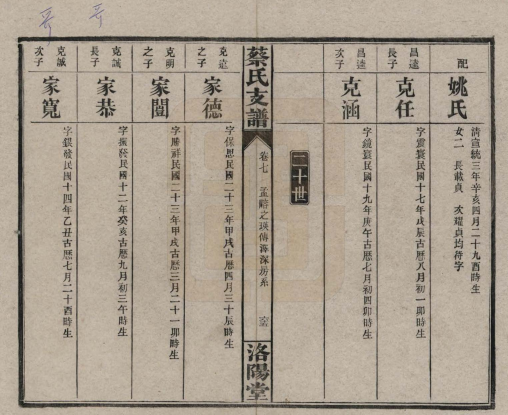 配
姚氏
清宣統三年辛亥四月二十九酉時生
女二 長載貞 次璀貞均待字
昌達
長子
克任
字震寰民國十七年戊辰古曆八月初一卯時生
昌達
次子
克涵
字鏡寰民國十九年庚午古曆七月初四卯時生
二十世
蔡氏支譜
卷七
洛陽堂
克寬
之子
家德
字保恩民國二十三年甲戌古曆四月三十辰時生
克明
之子
家闓
字勝祥民國二十三年甲戌古曆三月二十一卯時生
克誠
長子
家恭
字振發民國十二年癸亥古曆九月初三午時生
克誠
次子
家寬
字銀發民國十四年乙丑古曆七月二十酉時生